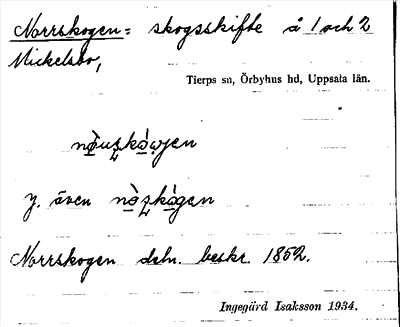 Norrskogen: skogsskifte å 1 och 2
Mickelsbo,
Tierps sn, Örbyhus hd, Uppsala län.
y. även
Norrskogen deln. beskr. 1852.
Ingegärd Isaksson 1934.